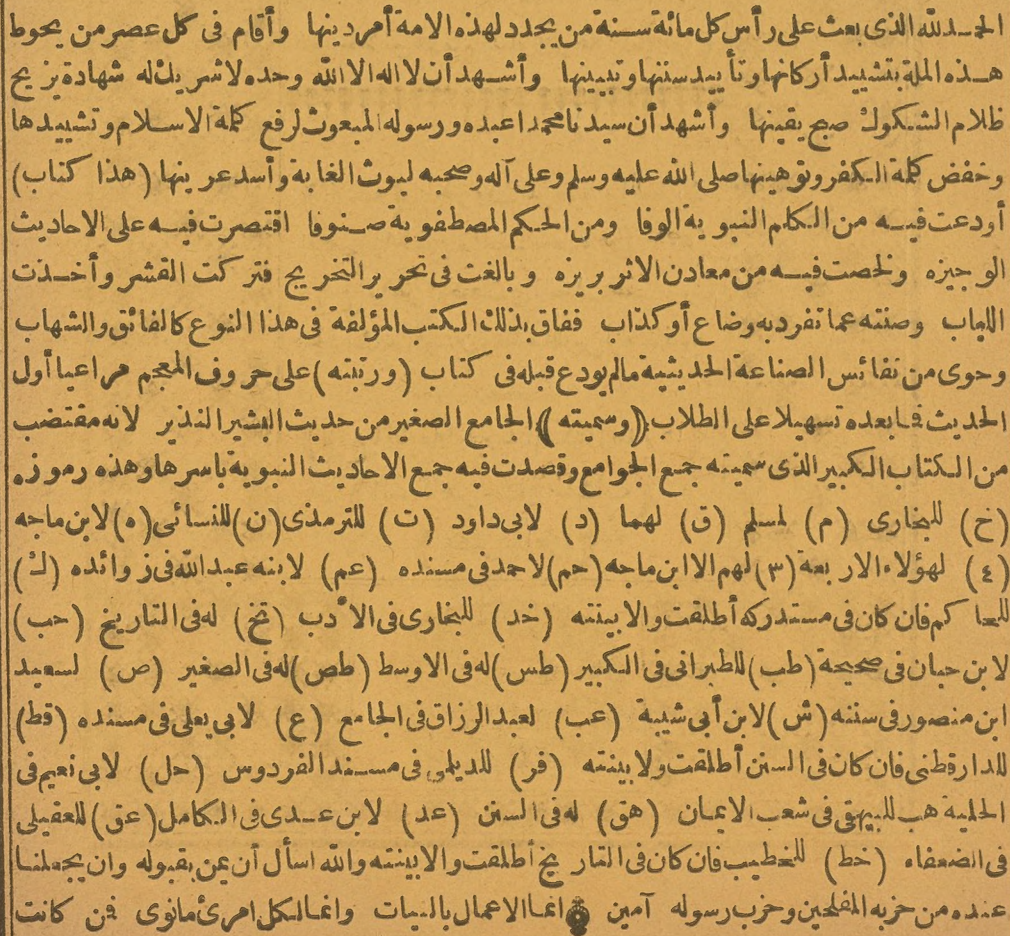 الحمد لله الذى بعث على رأس كل مائة سنة من يجدد لهذه الامة أمر دينها وأقام فى كل عصر من يحوط
هذه الملة بتشييد أركانها وتأييد سننها وتبيينها وأشهد أن لا اله الا الله وحده لا شريك له شهادة يزيح
ظلام الشكوك صبح يقينها وأشهد أن سيدنا محمدا عبده ورسوله المبعوث لرفع كلة الاسلام وتشييدها
وخفض كلمة الكفر وتوهينها صلى الله عليه وسلم وعلى آله وصحبه ليوث الغابة وأسد عرينها (هذا كتاب)
أودعت فيه من الكلم النبوية الوفا ومن الحكم المصطفوية صنوفا اقتصرت فيه على الاحاديث
الوجيزه ولخصت فيه من معادن الاثر بريزه وبالغت فى تحرير التخريج فتركت القشر وأخذت
اللباب وصنته عما تفرد به وضاع أو كذاب ففاق بذلك الكتب المؤلفة فى هذا النوع كالفائق والشهاب
وحوى من نفائس الصناعة الحديثية مالم يودع قبله فى كتاب (ورتبته) على حروف المعجم مراعيا أول
الحديث فما بعده تسهيلا على الطلاب (وسميته) الجامع الصغير من حديث البشير النذير لانه مقتضب
من الكتاب الكبير الذى سميته جمع الجوامع وقصدت فيه جمع الاحاديث النبوية باسرها وهذه رموزه
(خ) للبخارى (م) لمسلم (ق) لهما (د) لابى داود (ت) للترمذى (ن) للنسائى (ه) لابن ماجه
(٤) لهؤلاء الاربعة (٣) لهم الا ابن ماجه (حم) لاحمد فى مسنده (عم) لابنه عبد الله فى زوائده (ك)
للحاكم فان كان فى مستدركه أطلقت والا بينته (خد) للبخارى فى الأدب (تخ) له فى التاريخ (حب)
لابن حبان فى صحيحة (طب) للطبرانى فى الكبير (طس) له فى الاوسط (طص) له فى الصغير (ص) لسعيد
ابن منصور فى سننه (ش) لابن أبى شيبة (عب) لعبد الرزاق فى الجامع (ع) لابى يعلى فى مسنده (قط)
للدارقطنى فان كان فى السنن أطلقت ولا بينته (فر) للديلمى فى مسند الفردوس (حل) لابى نعيم فى
الحلية هب للبيهقى فى شعب الايمان (هق) له فى السنن (عد) لابن عدى فى الكامل (عق) للعقيلى
فى الضعفاء (خط) للخطيب فان كان فى التاريخ أطلقت والا بينته والله اسأل أن يمن بقبوله وان يجعلنا
عنده من حزبه المفلحين وحزب رسوله آمين انما الاعمال بالنيات وانما لكل امرئ مانوى فمن كانت